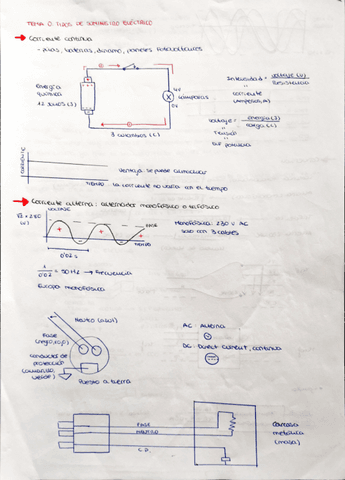 TEMA 0 TIPOS DE SUMINISTRO ELÉCTRICO
→ Corriente continua
- pilas, baterías, dinamo, paneles fotovoltaicos
Energía
química
12 Julios (J)
4V
lámparas
0V
3 culombios (C)
Intensidad = voltaje (V)
Resistencia
corriente
(amperios, A)
voltaje = energía (J)
carga (C)
tensión
CORRIENTE
TIEMPO
Ventaja: se puede acumular
La corriente no varía con el tiempo
→ Corriente alterna: alternador monofásico o trifásico
VOLTAJE
√2 × 230
(V)
FASE
TIEMPO
0'02 s
Monofásica: 230 V AC
solo con 3 cables
1
0'02
= 50 Hz → Frecuencia
Europa monofásica
Neutro (azul)
Fase
Conductor de
protección
(amarillo,
verde)
Puesta a tierra
AC: Alterna
DC: Direct Current, continua
FASE
NEUTRO
C.P.
Carcasa
metálica
(masa)